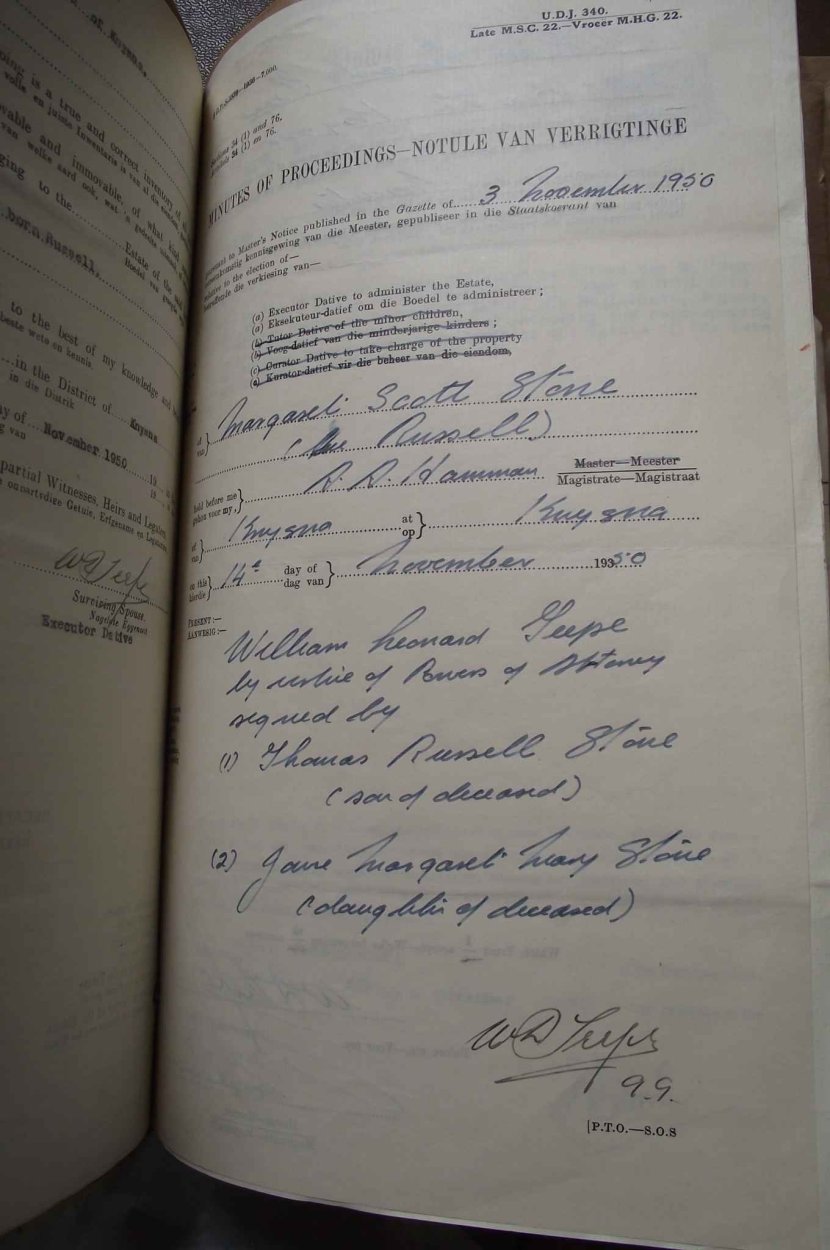 of Knysna,
oing is a true and correct inventory of al
volle en juiste Inventaris is van al die
ovable and immovable, of what kind
van welke aard ook, wat
ging to the........ Estate of the said
Boedel van
born Russell,
to the best of my knowledge and
beste wete en kennis.
...in the District of... Knysna
in die Distrik
ay of... November 1950 19
g van 19
partial Witnesses, Heirs and Legatees
Surviving Spouse.
Executor Dative
U.D.J. 340.
Late M.S.C. 22.—Vroeër M.H.G. 22.
24 (1) and 76.
24 (1) en 76.
MINUTES OF PROCEEDINGS—NOTULE VAN VERRIGTINGE
to Master's Notice published in the Gazette of...... 3 November 1950
kennisgewing van die Meester, gepubliseer in die Staatskoerant van
relative to the election of—
betreffende die verkiesing van—
(a) Executor Dative to administer the Estate,
(a) Eksekuteur-datief om die Boedel te administreer ;
(b) Tutor Dative of the minor children,
(b) Voog-datief van die minderjarige kinders ;
(c) Curator Dative to take charge of the property
(c) Kurator-datief vir die beheer van die eiendom,
of } Margaret Scott Stone
van
( Russell)
held before me } Hamman Master—Meester
gehou voor my, Magistrate—Magistraat
of } Knysna at } Knysna
van op
on this } 14th day of } November 1950
hierdie dag van
PRESENT :—
AANWESIG :—
William Leonard
by virtue of Powers of Attorney
signed by
(1) Thomas Russell Stone
(son of deceased)
(2) Jane Margaret Mary Stone
(daughter of deceased)
q.q.
[P.T.O.—S.O.S